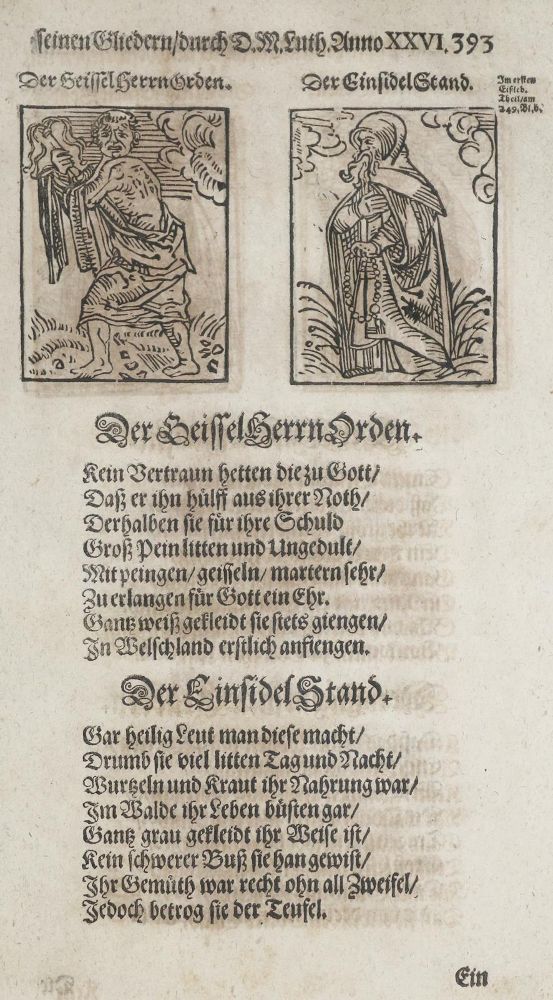 seinen Gliedern/durch D.M.Luth.Anno XXVI. 393
Der Geissel Herrn Orden.
Der Einsidel Stand.
Im ersten
Eisleb.
Theil/am
249.Bl.b.
Der Geissel Herrn Orden.
Kein Vertraun hetten die zu Gott/
Daß er ihn hülff aus ihrer Noth/
Derhalben sie für ihre Schuld
Groß Pein litten und Ungedult/
Mit peingen/ geisseln/ martern sehr/
Zu erlangen für Gott ein Ehr.
Gantz weiß gekleidt sie stets giengen/
In Welschland erstlich anfiengen.
Der Einsidel Stand.
Gar heilig Leut man diese macht/
Drumb sie viel litten Tag und Nacht/
Wurtzeln und Kraut ihr Nahrung war/
Im Walde ihr Leben büsten gar/
Gantz grau gekleidt ihr Weise ist/
Kein schwerer Buß sie han gewist/
Ihr Gemüth war recht ohn all Zweifel/
Jedoch betrog sie der Teufel.
Ein